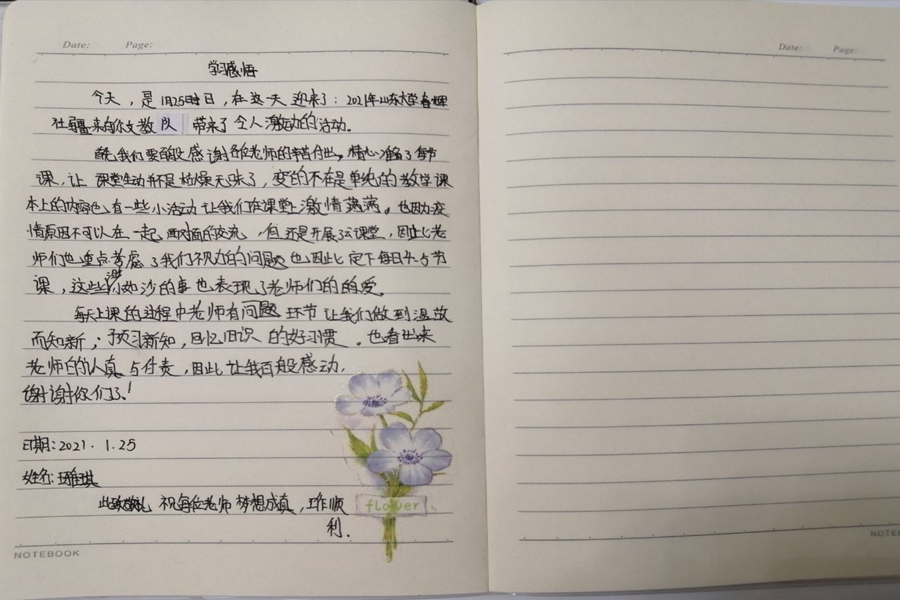 Date: Page:
学习感悟
今天,是1月25日,在这天迎来了:2021年山东大学春晖
社 来的支教队 带来了令人激动的活动。
首先我们要百般感谢各位老师的辛苦付出,精心准备了每节
课,让课堂生动并不是枯燥无味了,变的不在是单纯的教学课
本上的内容也有一些小活动让我们在课堂上激情满满。也因为疫
情原因不可以在一起面对面的交流,但还是开展了云课堂,因此老
师们也重点考虑了我们视力的问题也因此定下每日4-5节
课,这些渺小如沙的事也表现了老师们的的爱。
每天上课的过程中老师有问题环节让我们做到温故
而知新,预习新知,回忆旧识的好习惯。也看出来
老师的认真与付责,因此让我百般感动.
谢谢你们了!
日期:2021.1.25
姓名: 琪
此致敬礼 祝每位老师梦想成真,工作顺
利.
flower
NOTEBOOK
Date: Page:
NOTE